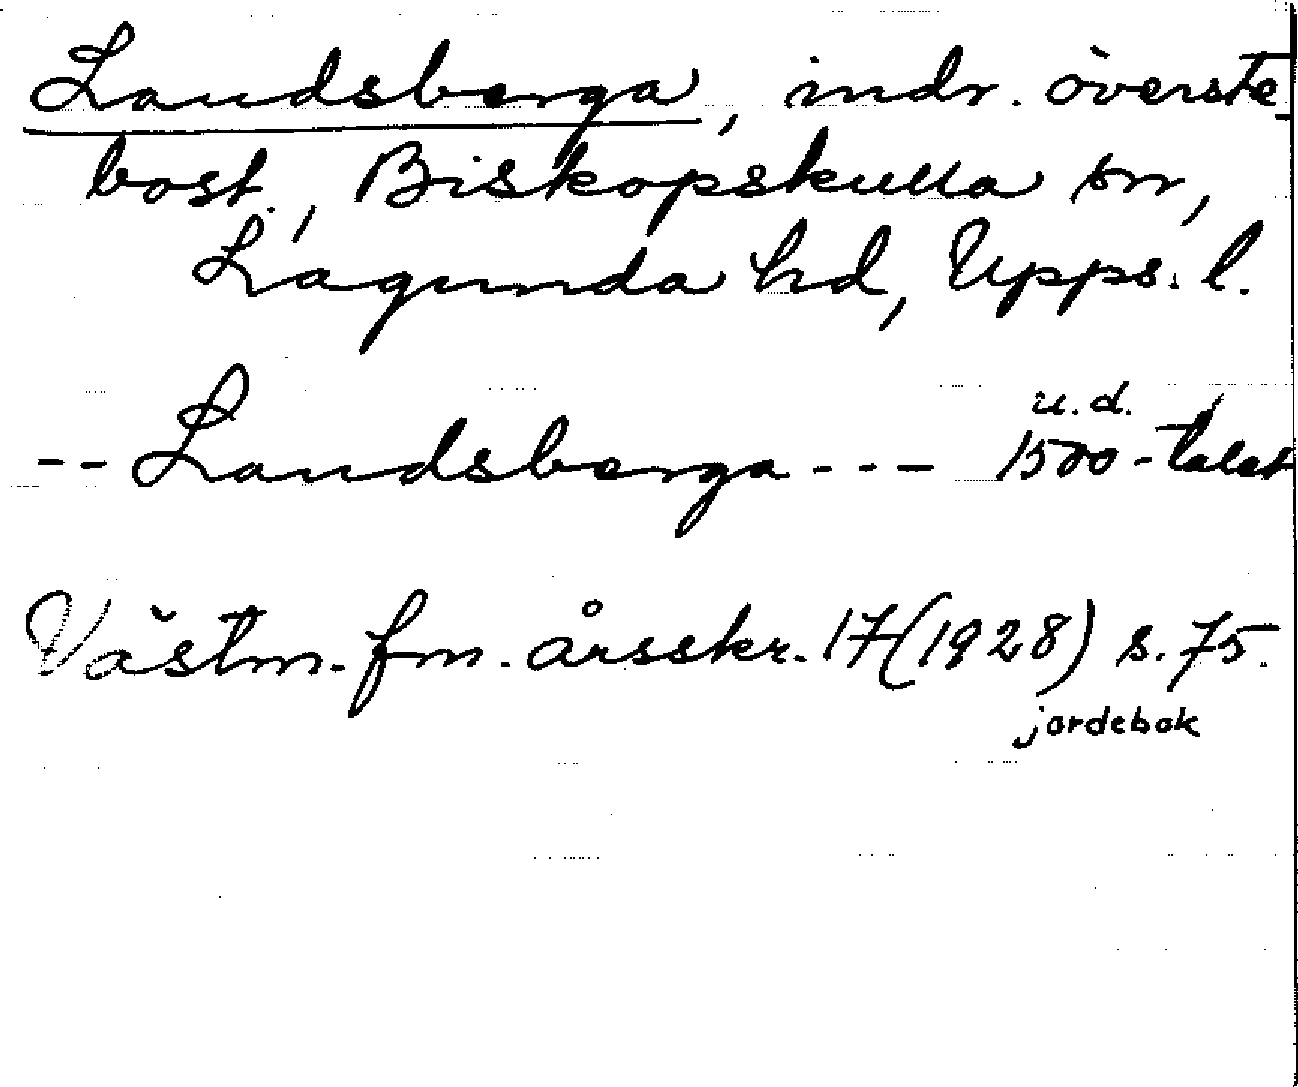 Landsberga, indr. överste-
bost., Biskopskulla sn,
Lagunda hd, Upps. l.
u. d.
-- Landsberga --- 1500-talet
Västm. fm. årsskr. 17 (1928) s. 75.
jordebok